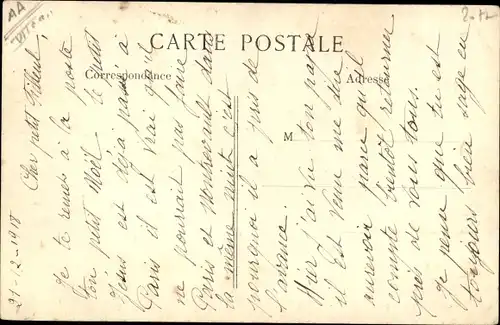 AA
VITRA..
2.12
CARTE POSTALE
Correspondance
Adresse
M
21-12-1918
Cher petit
Je te remets à la poste
ton petit Noël, le petit
Jésus est déjà passé à
Paris il est vrai qu'il
ne pouvait pas faire
Paris et dans
la même nuit c'est
pourquoi il a pris de
l'avance.
Hier j'ai vu ton papa
il est venu me dire
aurevoir parce qu'il
compte bientôt retourner
près de vous tous.
Je pense que tu es
toujours bien sage en